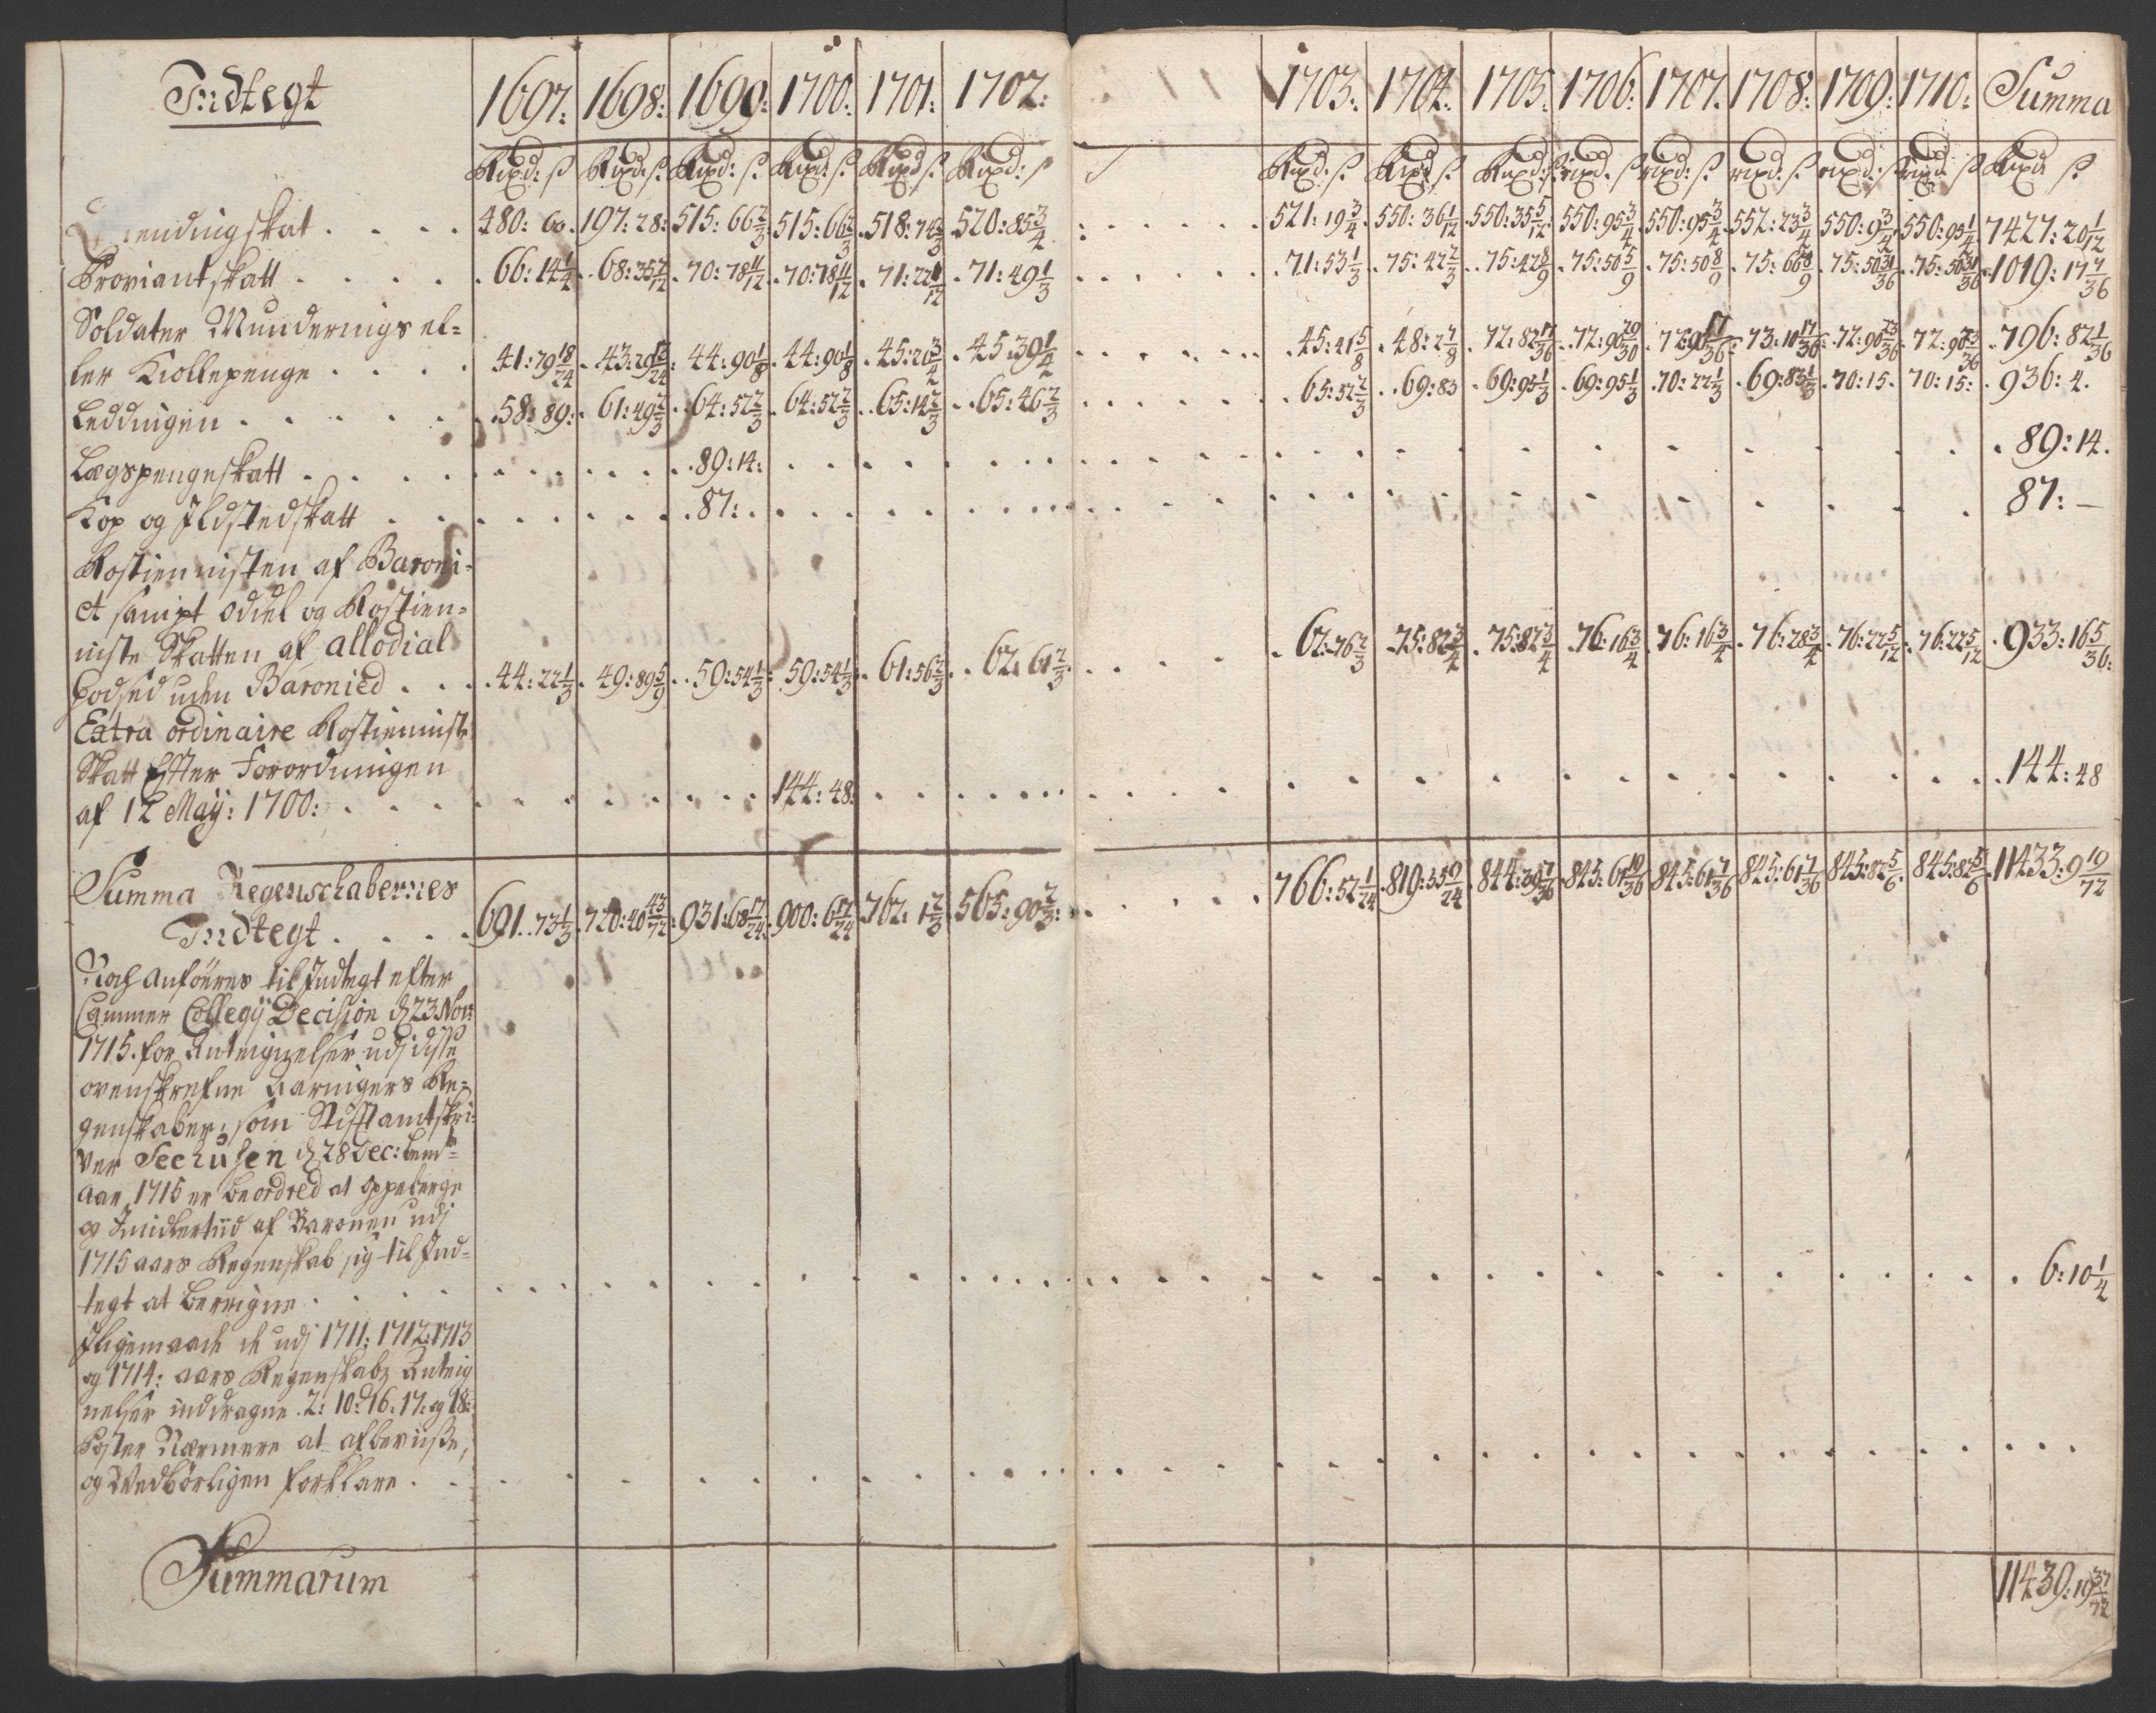 Indtegt 1697: 1698: 1699: 1700: 1701: 1702: 1703: 1704: 1705: 1706: 1707: 1708: 1709: 1710: Summa
Rixd: ß Rixd: ß Rixd: ß Rixd: ß Rixd ß Rixd: ß Rixd: ß Rixd ß Rixd: ß rixd. ß rixd: ß rixd: ß rixd: ß rixd: ß Rixd ß
endingskat 480: 60. 197: 28: 515: 66 2/3 515: 66 2/3 518: 74 2/3 520: 85 3/4 521: 19 3/4 550: 36 1/12 550: 35 5/12 550: 95 3/4 550: 95 3/4 552: 23 3/4 550: 9 3/4 550: 95 1/4 7427: 20 1/12
Proviantskatt 66: 14 1/4 68: 35 7/12 70: 78 11/12 70: 78 11/12 71: 22 1/12 71: 49 1/3 71: 53 1/3 75: 42 2/3 75: 42 8/9 75: 50 5/9 75: 50 8/9 75: 66 8/9 75: 50 31/36 75: 50 31/36 1019: 17 7/36
Soldater Munderings el=
ler Kiollepenge 41: 79 18/24 43: 29 13/24 44: 90 1/8 44: 90 1/8 45: 20 3/4 45: 39 1/2 45: 41 5/8 48: 2 7/8 72: 82 17/36 72: 90 29/30 72: 90 17/36 73: 11 17/36 72: 90 23/36 72: 90 23/36 796: 82 1/36
Leddingen 58: 89: 61: 49 2/3 64: 52 2/3 64: 52 2/3 65: 14 2/3 65: 46 2/3 65: 52 2/3 69: 83 69: 95 1/3 69: 95 1/3 70: 22 1/3 69: 83 1/3 70: 15. 70: 15: 936: 4.
Lægspengeskatt 89: 14: 89: 14.
Kop og Ildstedskatt 87: 87: —
Rostiennisten af Baroni-
et sampt Odiel og Rostien=
niste Skatten af allodial
Godsed uden Baronied 44: 22 1/3 49: 89 5/9 59: 54 1/3 59: 54 1/3 61: 56 2/3 62: 61 2/3 62: 76 2/3 75: 82 3/4 75: 82 3/4 76: 16 3/4 76: 16 3/4 76: 28 3/4 76: 22 5/12 76: 22 5/12 933: 16 5/36:
Extra ordinaire Rostienniste
Skatt Efter Forordningen
af 12 May: 1700: 144: 48: 144: 48
Summa Regenschabernes
Indtegt 691. 73 1/3 720: 40 43/72 931: 68 17/24 900: 6 17/24 762: 1 2/3 565: 90 2/3: 766: 52 1/24 819: 35 9/24 844: 39 7/36 845: 61 19/36 845: 61 7/36 845: 61 7/36 845: 82 5/6 845: 82 5/6 11433: 9 19/72
Noch anføeres til Indtegt efter
Cammer Collegij Decision d 23 Nov:
1715. for Antegnelser udj disse
ovenskrefne Aaringers Re=
genskaber, som Stifftamtskri-
ver Seehusen d 28 Dec: bem=
aar 1715 er beordred at oppeberge
og Imidlertiid af Baronen udj
1715 aars Regenskab sig til Ind=
tegt at beregne 6: 10 1/4
Iligemaade de udj 1711: 1712: 1713
og 1714: aars Regenskabs Anteig
nelser inddragne 2: 10: 16: 17: og 18:
Poster Nærmere at afbeviise,
og Wedbörligen forklare
Summarum 11439: 19 37/72